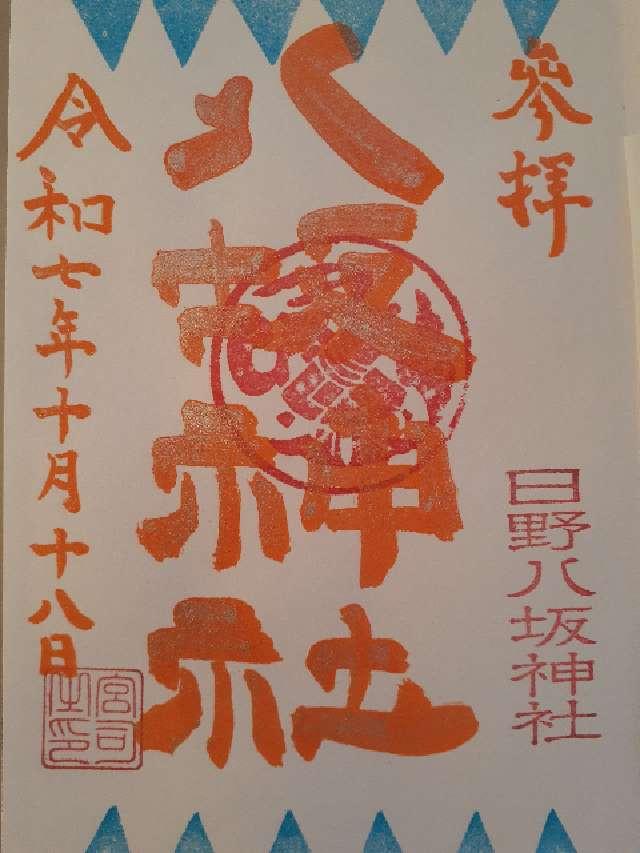 參拝
日野八坂神社
八坂神社
令和七年十月十八日
宮司之印